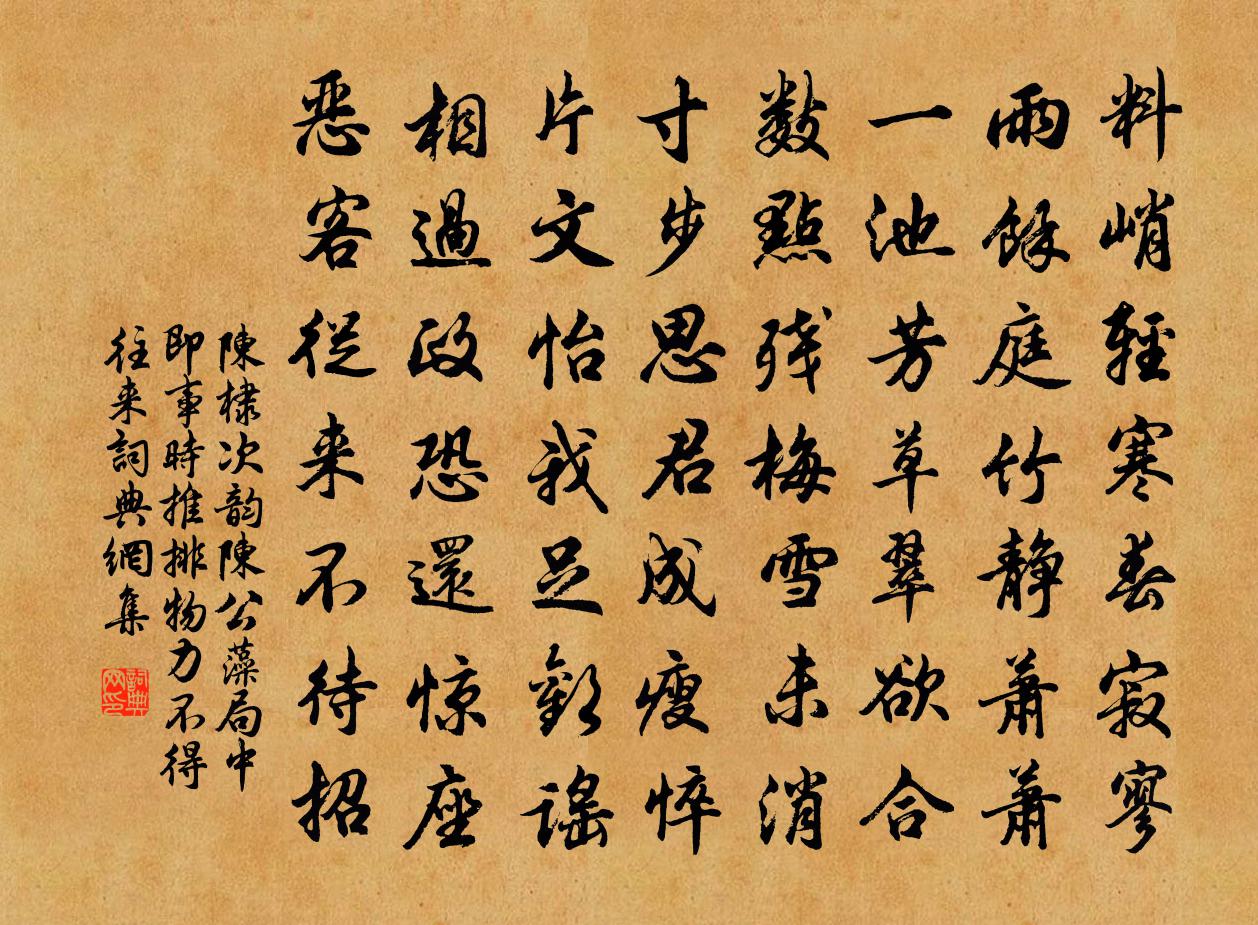 料峭輕寒春寂寥
雨餘庭竹靜蕭蕭
一池芳草翠欲合
數點殘梅雪未消
寸步思君成瘦悴
片文怡我足歡謠
相過政恐還惊座
惡客從来不待招
陳棣次韵陳公藻局中
即事時推排物力不得
往来詞典網集
詞典网印